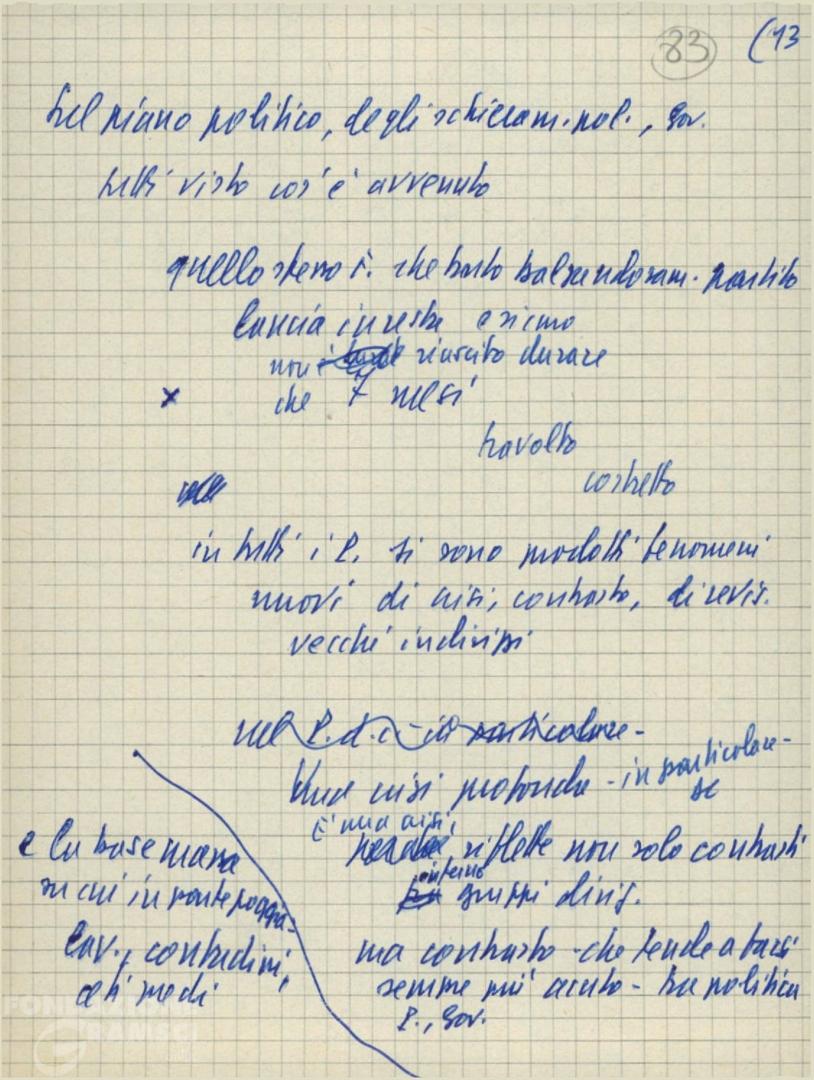 83 (13
sul piano politico, degli schieram. pol., gov.
tutti visto cos'è avvenuto
quello stesso G. che
partito
lancia in resta
non è riuscito durare
che 7 mesi
x
travolto
costretto
in tutti i P. si sono prodotti fenomeni
nuovi di crisi, contrasto, di revis.
vecchi indirizzi
nel P.d.c. - in particolare -
Una crisi profonda - in particolare -
DC
È una crisi
riflette non solo contrasti
interno
gruppi dirig.
ma contrasto - che tende a farsi
sempre più acuto - tra politica
P., Gov.
e la base massa
su cui in parte poggia -
lav., contadini,
ceti medi
FONDAZIONE
GRAMSCI